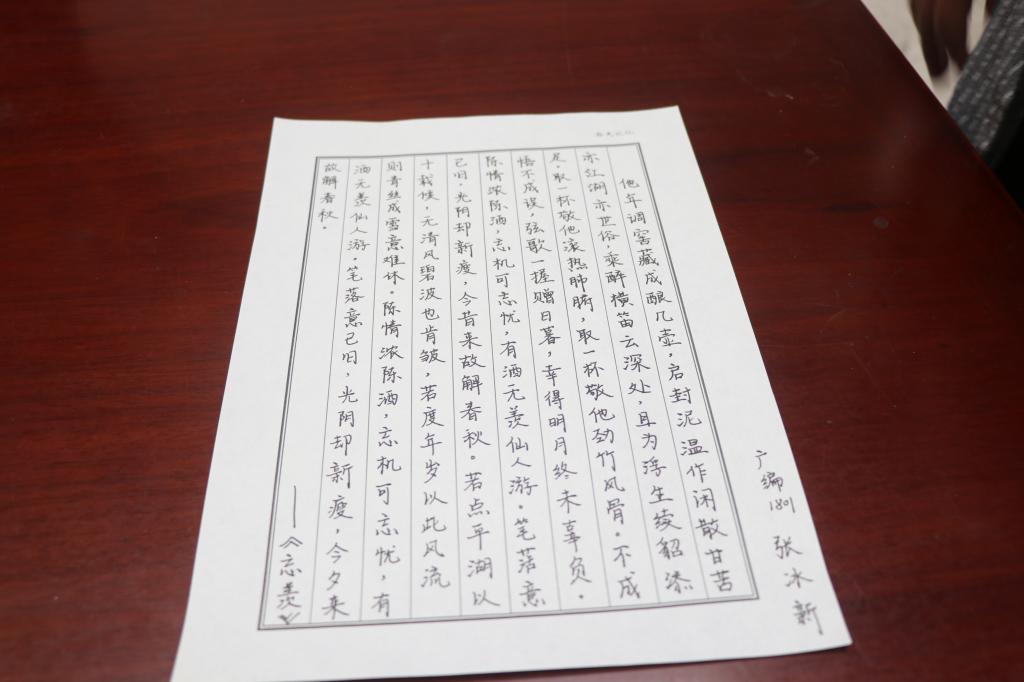 广编1801 张冰新
他年调窖藏成酿几壶，启封泥温作闲散甘苦
亦江湖亦世俗，乘醉横笛云深处，且为浮生续貂添
足，取一杯敬他滚热肺腑，取一杯敬他劲竹风骨。不成
悟不成误，弦歌一握赠日暮，幸得明月终未辜负。
陈情浓陈酒，忘机可忘忧，有酒无羡仙人游。笔落意
已旧，光阴却新瘦，今昔来故解春秋。若点平湖以
十载候，无清风碧波也肯皱，若度年岁以此风流
则青丝成雪意难休。陈情浓陈酒，忘机可忘忧，有
酒无羡仙人游。笔落意已旧，光阴却新瘦，今夕来
故解春秋。
——《忘羡》